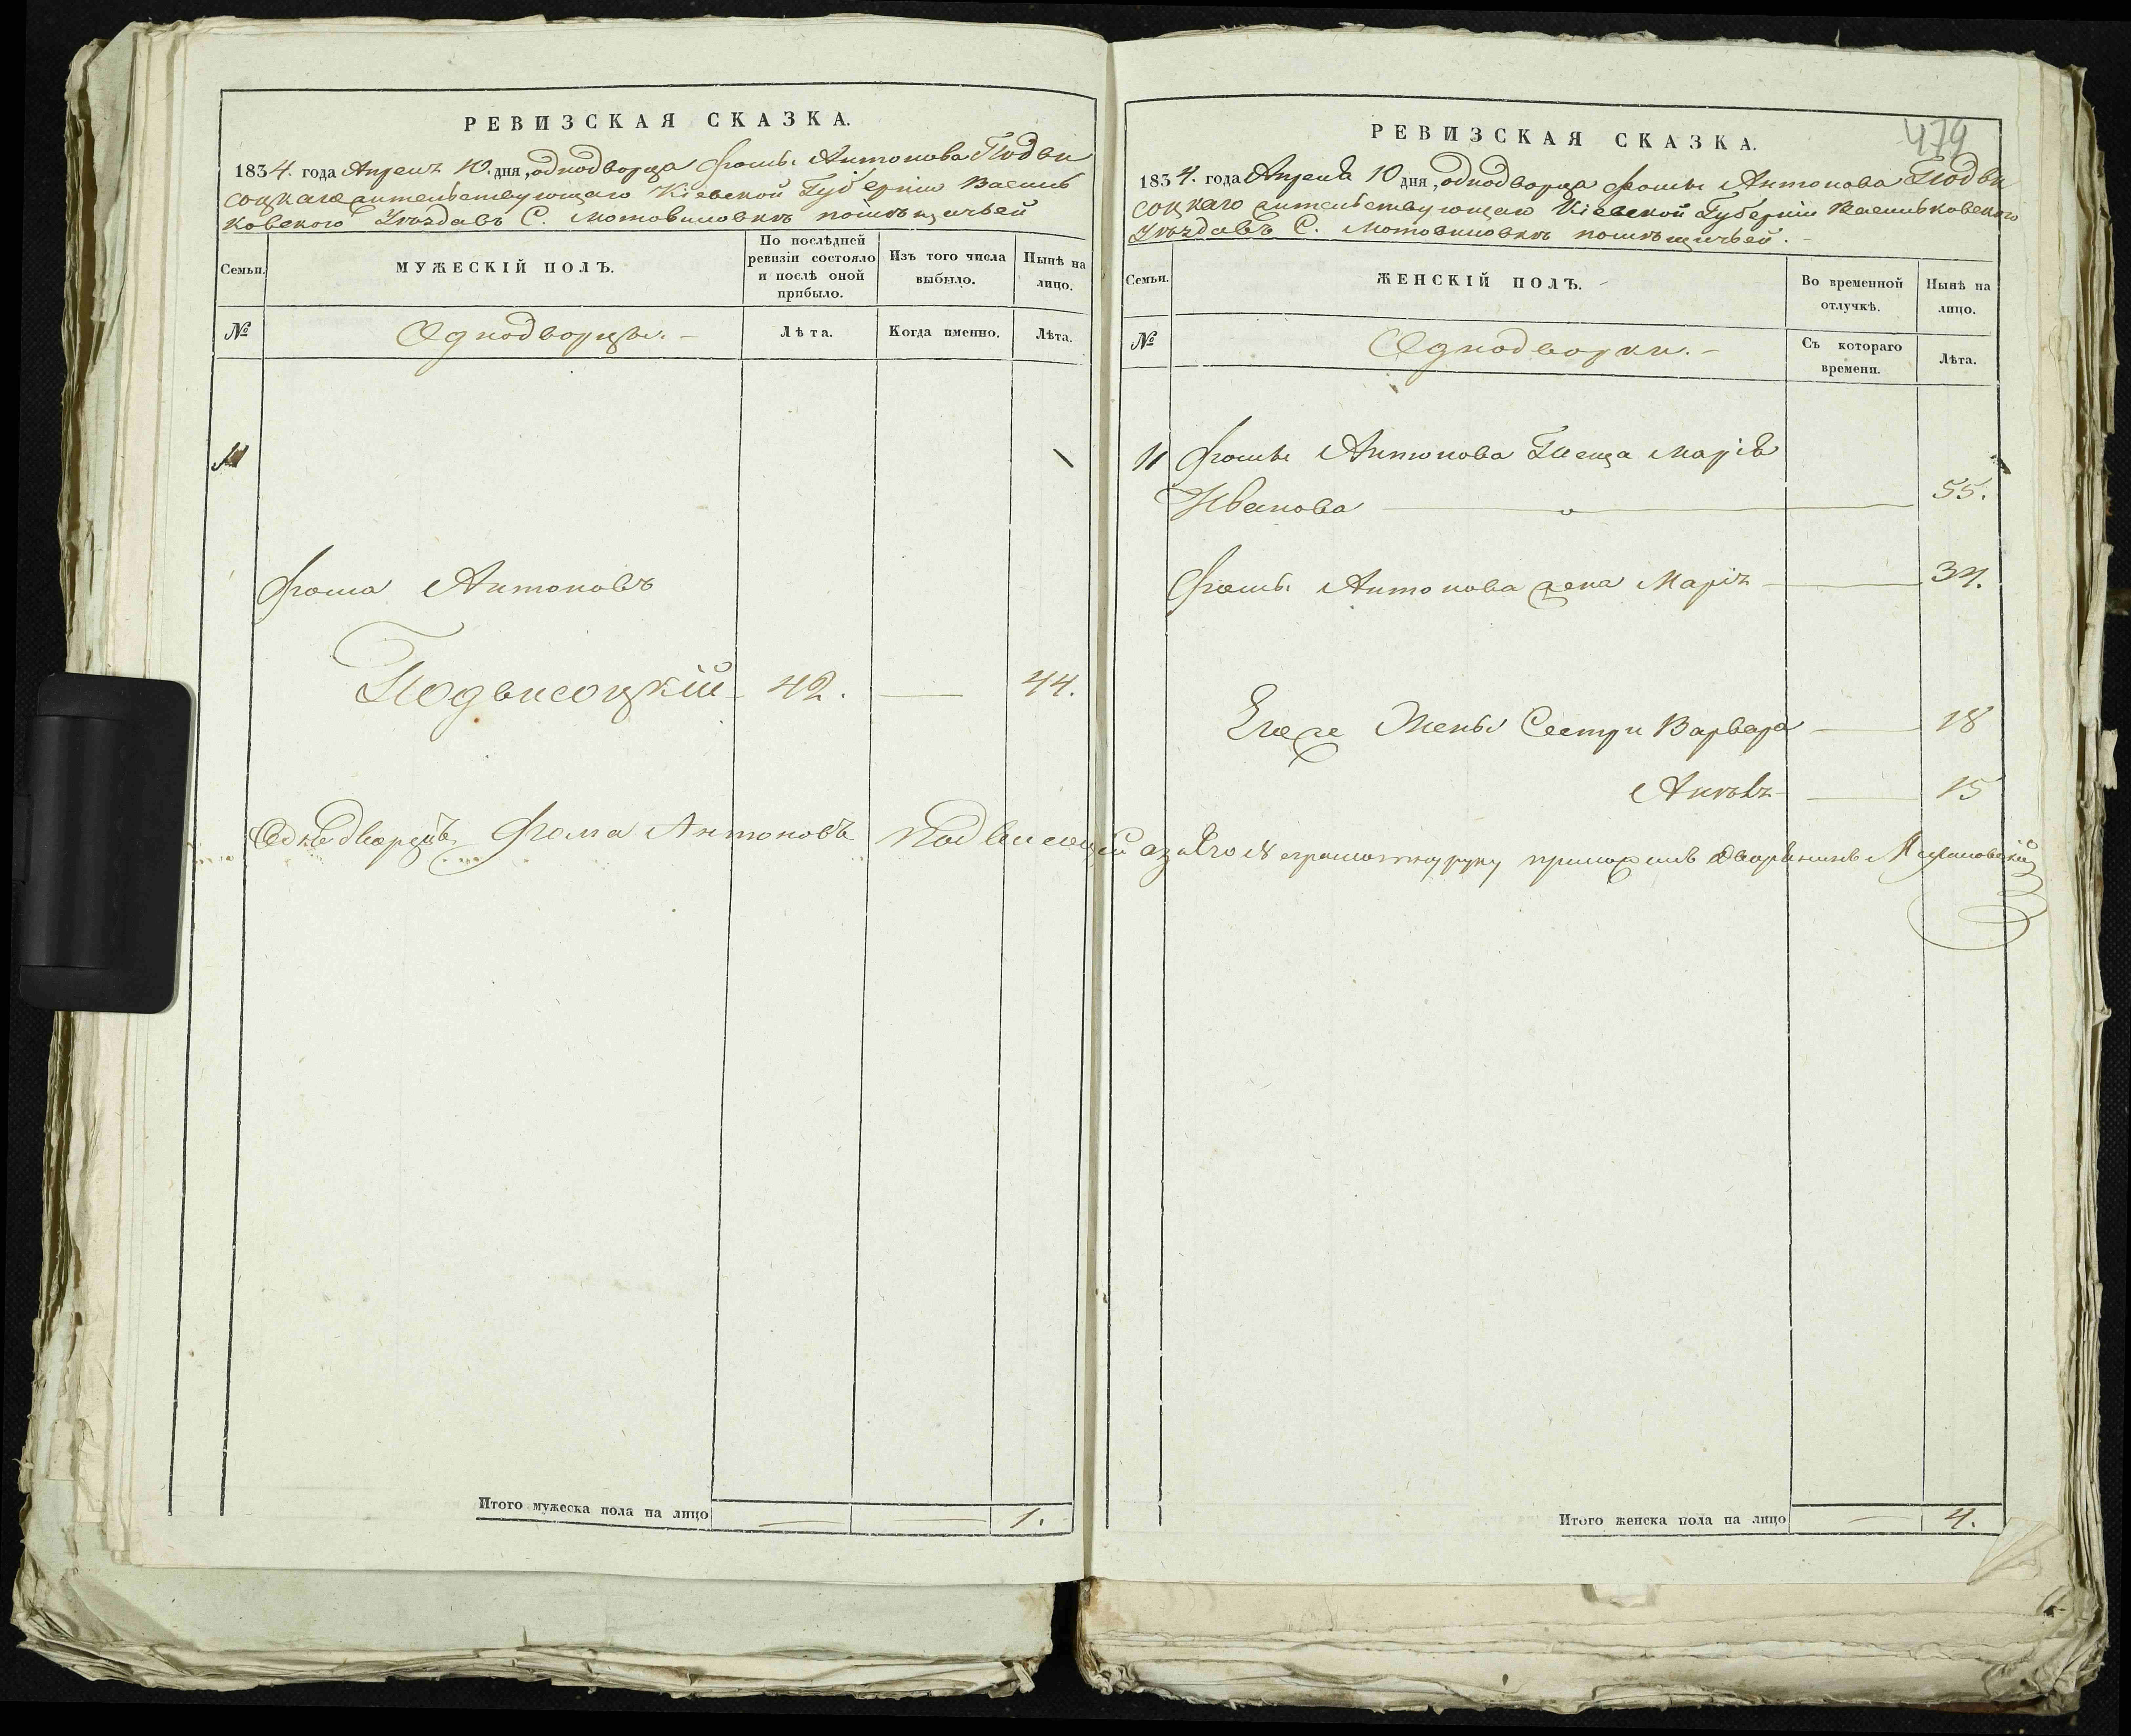 РЕВИЗСКАЯ СКАЗКА.
1834. года Апреля 10. дня, однодворца Фомы Антонова Подви
соцкаго жительствующаго Кіевской Губерніи Василь
ковского Уѣзда въ С. Мотовиловкѣ помѣщичьей
Семьи.
МУЖЕСКІЙ ПОЛЪ.
По послѣдней ревизіи состояло и послѣ оной прибыло.
Изъ того числа выбыло.
Нынѣ на лицо.
№
Однодворцы.
Лѣта.
Когда именно.
Лѣта.
11
Фома Антоновъ
Подвисоцкій 42. — 44.
Однодворецъ Фома Антоновъ Подвисоцкій а за его неграмотную руку приложилъ Дворянинъ
Итого мужеска пола на лицо — — 1.
479
РЕВИЗСКАЯ СКАЗКА.
1834. года Апреля 10 дня, однодворца Фомы Антонова Подви
соцкаго жительствующаго Кіевской Губерніи Васильковского
Уѣзда въ С. Мотовиловкѣ помѣщичьей.
Семьи.
ЖЕНСКІЙ ПОЛЪ.
Во временной отлучкѣ.
Нынѣ на лицо.
№
Однодворки.
Съ котораго времени.
Лѣта.
11 Фомы Антонова Теща Марія
Иванова — 55.
Фомы Антонова жена Марія — 34.
Его же Жены Сестры Варвара — 18
— 15
Итого женска пола на лицо — 4.